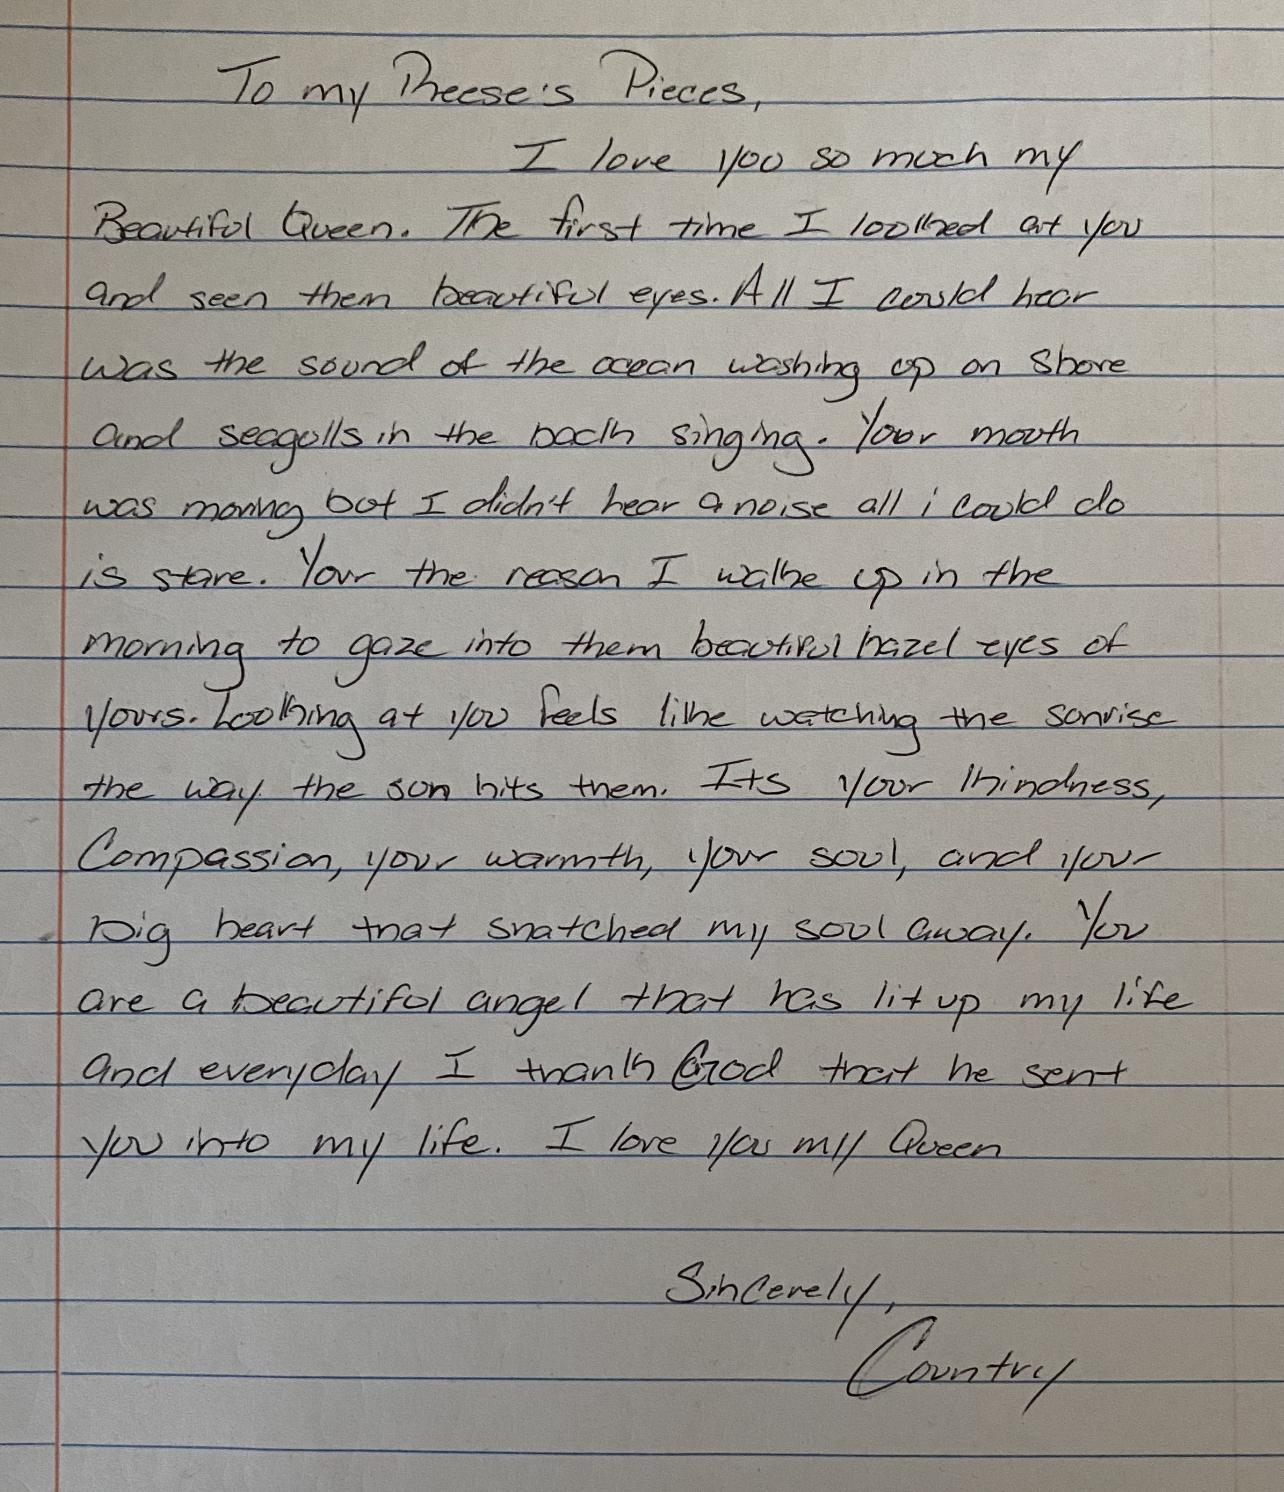 To my Reese's Pieces,
I love you so much my
Beautiful Queen. The first time I looked at you
and seen them beautiful eyes. All I could hear
was the sound of the ocean washing up on shore
and seagulls in the back singing. Your mouth
was moving but I didn't hear a noise all i could do
is stare. Your the reason I wake up in the
morning to gaze into them beautiful hazel eyes of
yours. Looking at you feels like watching the sunrise
the way the sun hits them. Its your kindness,
Compassion, your warmth, your soul, and your
big heart that snatched my soul away. You
are a beautiful angel that has lit up my life
and everyday I thank God that he sent
you into my life. I love you my Queen
Sincerely,
Country